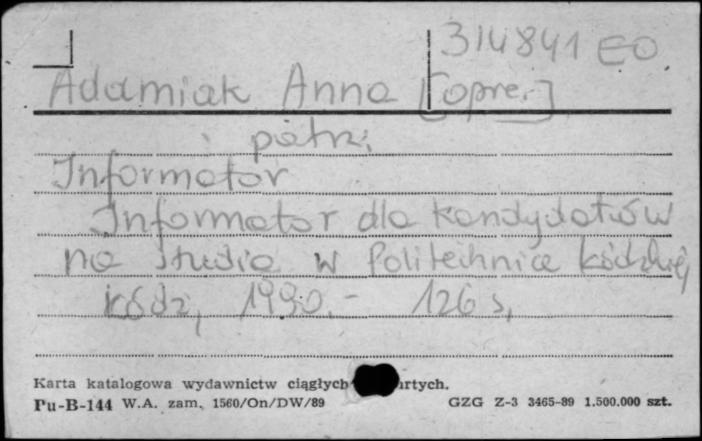 314841 EO
Adamiak Anna [oprac.]
patrz:
Informator
Informator dla kandydatów
na studia w Politechnice Łódzkiej
Łódź, 1990.- 126 s,
Karta katalogowa wydawnictw ciągłych artych.
Pu-B-144 W.A. zam. 1560/On/DW/89 GZG Z-3 3465-89 1.500.000 szt.